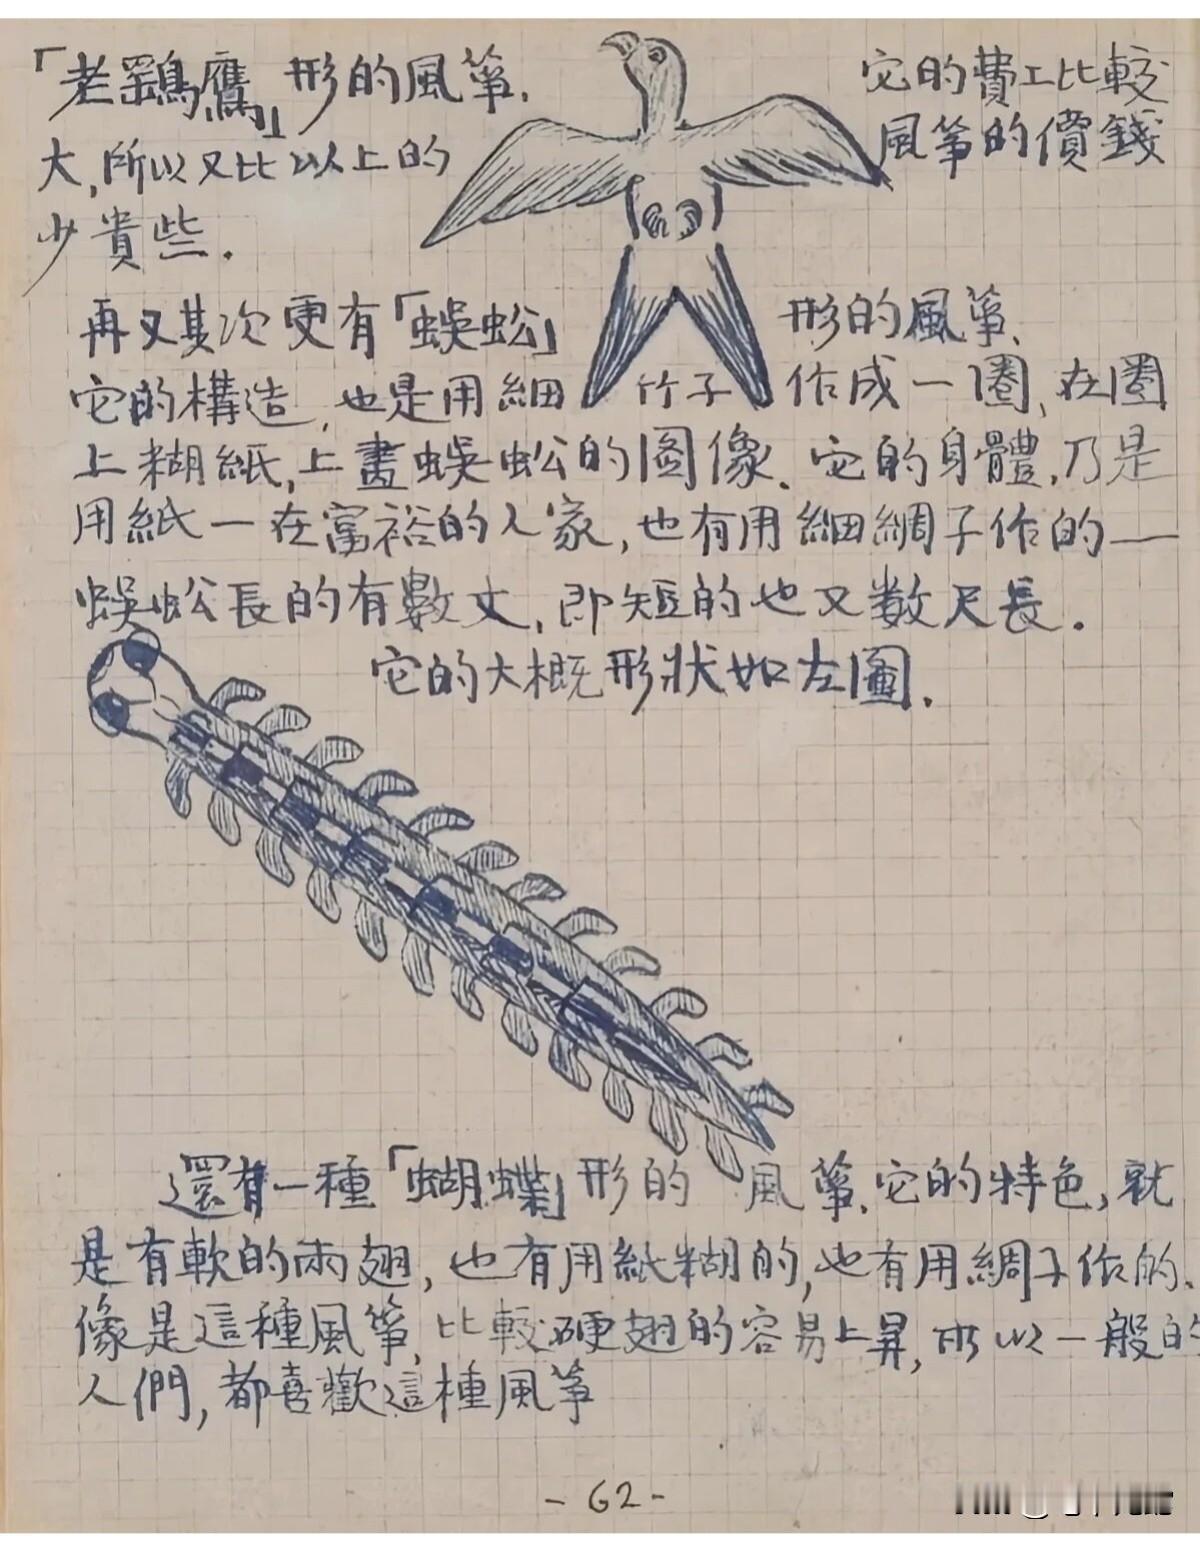 「老鷂鷹」形的風箏，它的費工比較
大，所以又比以上的風箏的價錢
少貴些．
再又其次更有「蜈蚣」形的風箏、
它的構造，也是用細竹子作成一圈，在圈
上糊紙，上畫蜈蚣的圖像、它的身體，乃是
用紙一在富裕的人家，也有用細綢子作的——
蜈蚣長的有數丈，即短的也又数尺長．
它的大概形狀如左圖．
還有一種「蝴蝶」形的風箏、它的特色，就
是有軟的兩翅，也有用紙糊的，也有用綢子作的、
像是這種風箏，比較硬翅的容易上昇，所以一般的
人們，都喜歡這種風箏
-62-